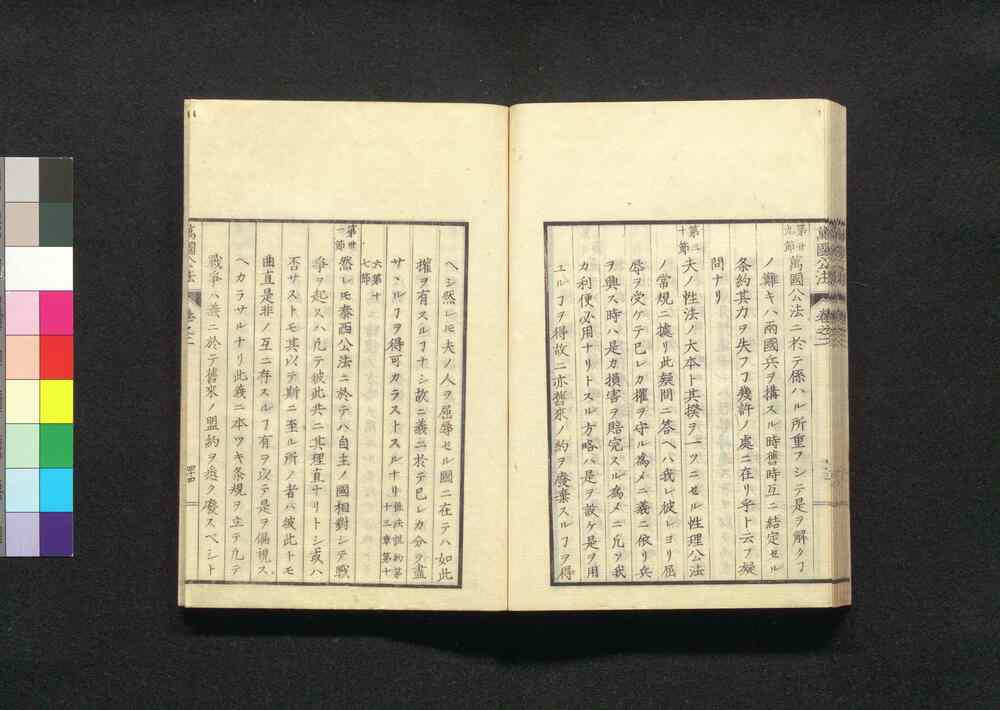 萬國公法 卷之二
第廿九節 萬國公法ニ於テ係ハル所重フシテ是ヲ解クヿ
ノ難キハ兩國兵ヲ搆スル時舊時互ニ結定セル
条約其力ヲ失フヿ幾許ノ處ニ在リ乎ト云フ疑
問ナリ
第三十節 夫ノ性法ノ大本ト其揆ヲ一ツニセル性理公法
ノ常規ニ據リ此疑問ニ答ヘハ我レ彼レヨリ屈
辱ヲ受ケテ已レカ權ヲ守ル為メニ義ニ依リ兵
ヲ興ス時ハ是カ損害ヲ賠完スル為メニ凡ソ我
カ利便必用ナリトスル方略ハ是ヲ設ケ是ヲ用
ユルヿヲ得故ニ亦舊來ノ約ヲ廢棄スルヿヲ得
ヘシ然レモ夫ノ人ヲ屈辱セル國ニ在テハ如此
權ヲ有スルヿナシ故ニ義ニ於テ已レカ分ヲ盡
サヽルヿヲ得可カラストスルナリ
第十六七節
十三章第十
第卅一節 然レモ泰西公法ニ於テハ自主ノ國相對シテ戰
爭ヲ起スハ凡テ彼此共ニ其理直ナリトシ或ハ
否サストモ其以テ斯ニ至ル所ノ者ハ彼此トモ
曲直是非ノ互ニ存スルヿ有ヲ以テ是ヲ偏視ス
ヘカラサルナリ此義ニ本ツキ条規ヲ立テ凡テ
戰爭ハ義ニ於テ舊來ノ盟約ヲ悉ク廢スベシト
萬國公法 卷之二 四十四